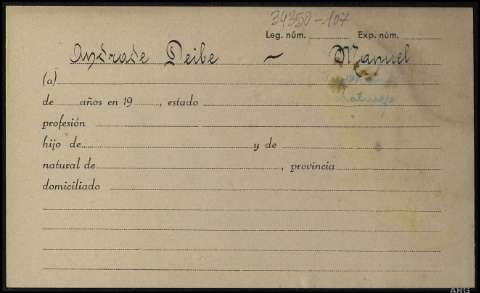 34350-107
Leg. núm. Exp. núm.
Andrade Deibe ~ Manuel
(a)
de años en 19 , estado
profesión
hijo de y de
natural de , provincia
domiciliado
ARG